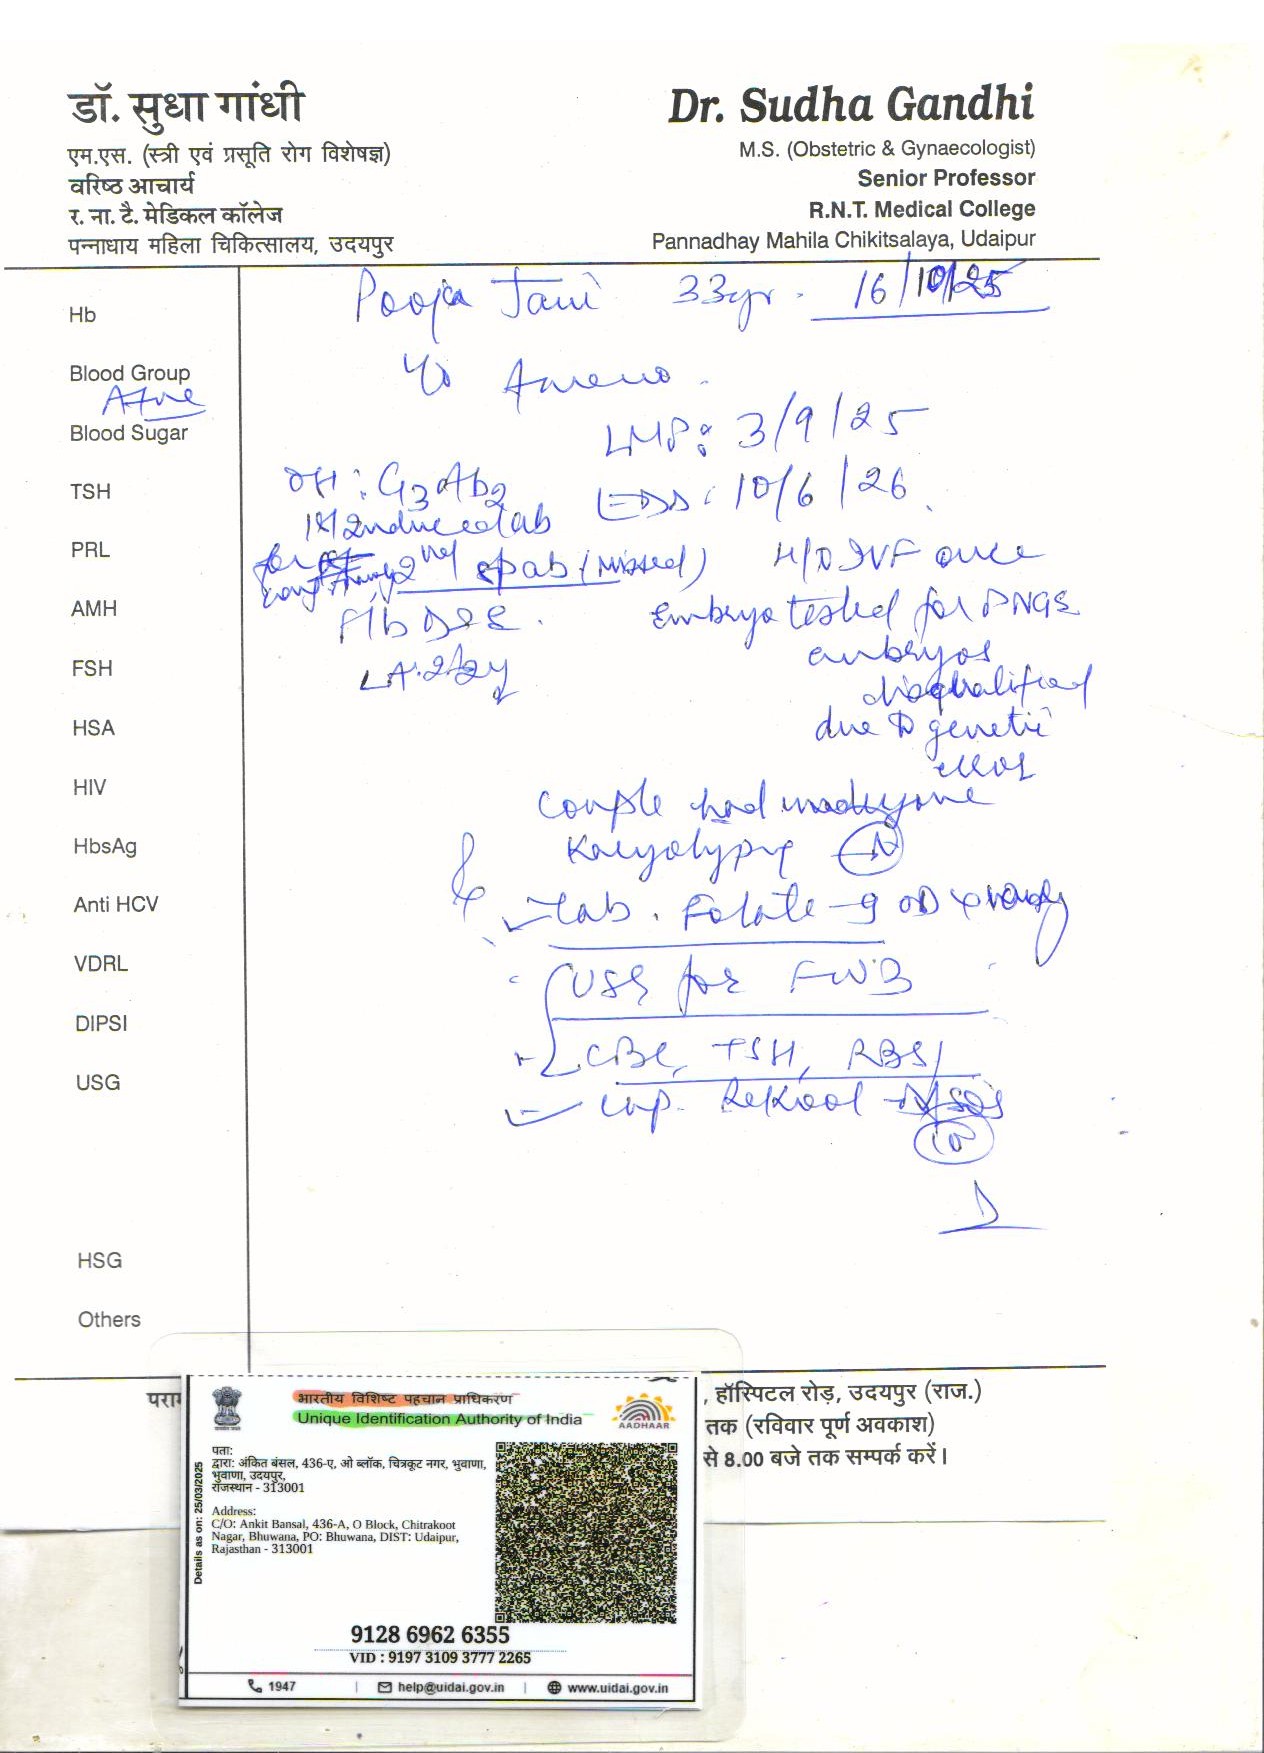 डॉ. सुधा गांधी
एम.एस. (स्त्री एवं प्रसूति रोग विशेषज्ञ)
वरिष्ठ आचार्य
र. ना. टै. मेडिकल कॉलेज
पन्नाधाय महिला चिकित्सालय, उदयपुर
Dr. Sudha Gandhi
M.S. (Obstetric & Gynaecologist)
Senior Professor
R.N.T. Medical College
Pannadhay Mahila Chikitsalaya, Udaipur
Hb
Blood Group
A+ve
Blood Sugar
TSH
PRL
AMH
FSH
HSA
HIV
HbsAg
Anti HCV
VDRL
DIPSI
USG
HSG
Others
Pooja 33yr. 16/10/25
LMP: 3/9/25
OH: G3Ab2 EDD: 10/6/26
1st Induced ab
for 2nd spab (missed) H/O IVF once
Embryo tested for PNGS
embryos
disqualified
due to genetic
error
couple had
Karyotyping N
Tab. Folate-9 OD
USG for FWB
CBC, TSH, RBS
10
परा
, हॉस्पिटल रोड़, उदयपुर (राज.)
तक (रविवार पूर्ण अवकाश)
से 8.00 बजे तक सम्पर्क करें।
भारतीय विशिष्ट पहचान प्राधिकरण
Unique Identification Authority of India
AADHAAR
Details as on: 25/03/2025
पता:
द्वारा: अंकित बंसल, 436-ए, ओ ब्लॉक, चित्रकूट नगर, भुवाणा,
भुवाणा, उदयपुर,
राजस्थान - 313001
Address:
C/O: Ankit Bansal, 436-A, O Block, Chitrakoot
Nagar, Bhuwana, PO: Bhuwana, DIST: Udaipur,
Rajasthan - 313001
9128 6962 6355
VID : 9197 3109 3777 2265
1947 | help@uidai.gov.in | www.uidai.gov.in